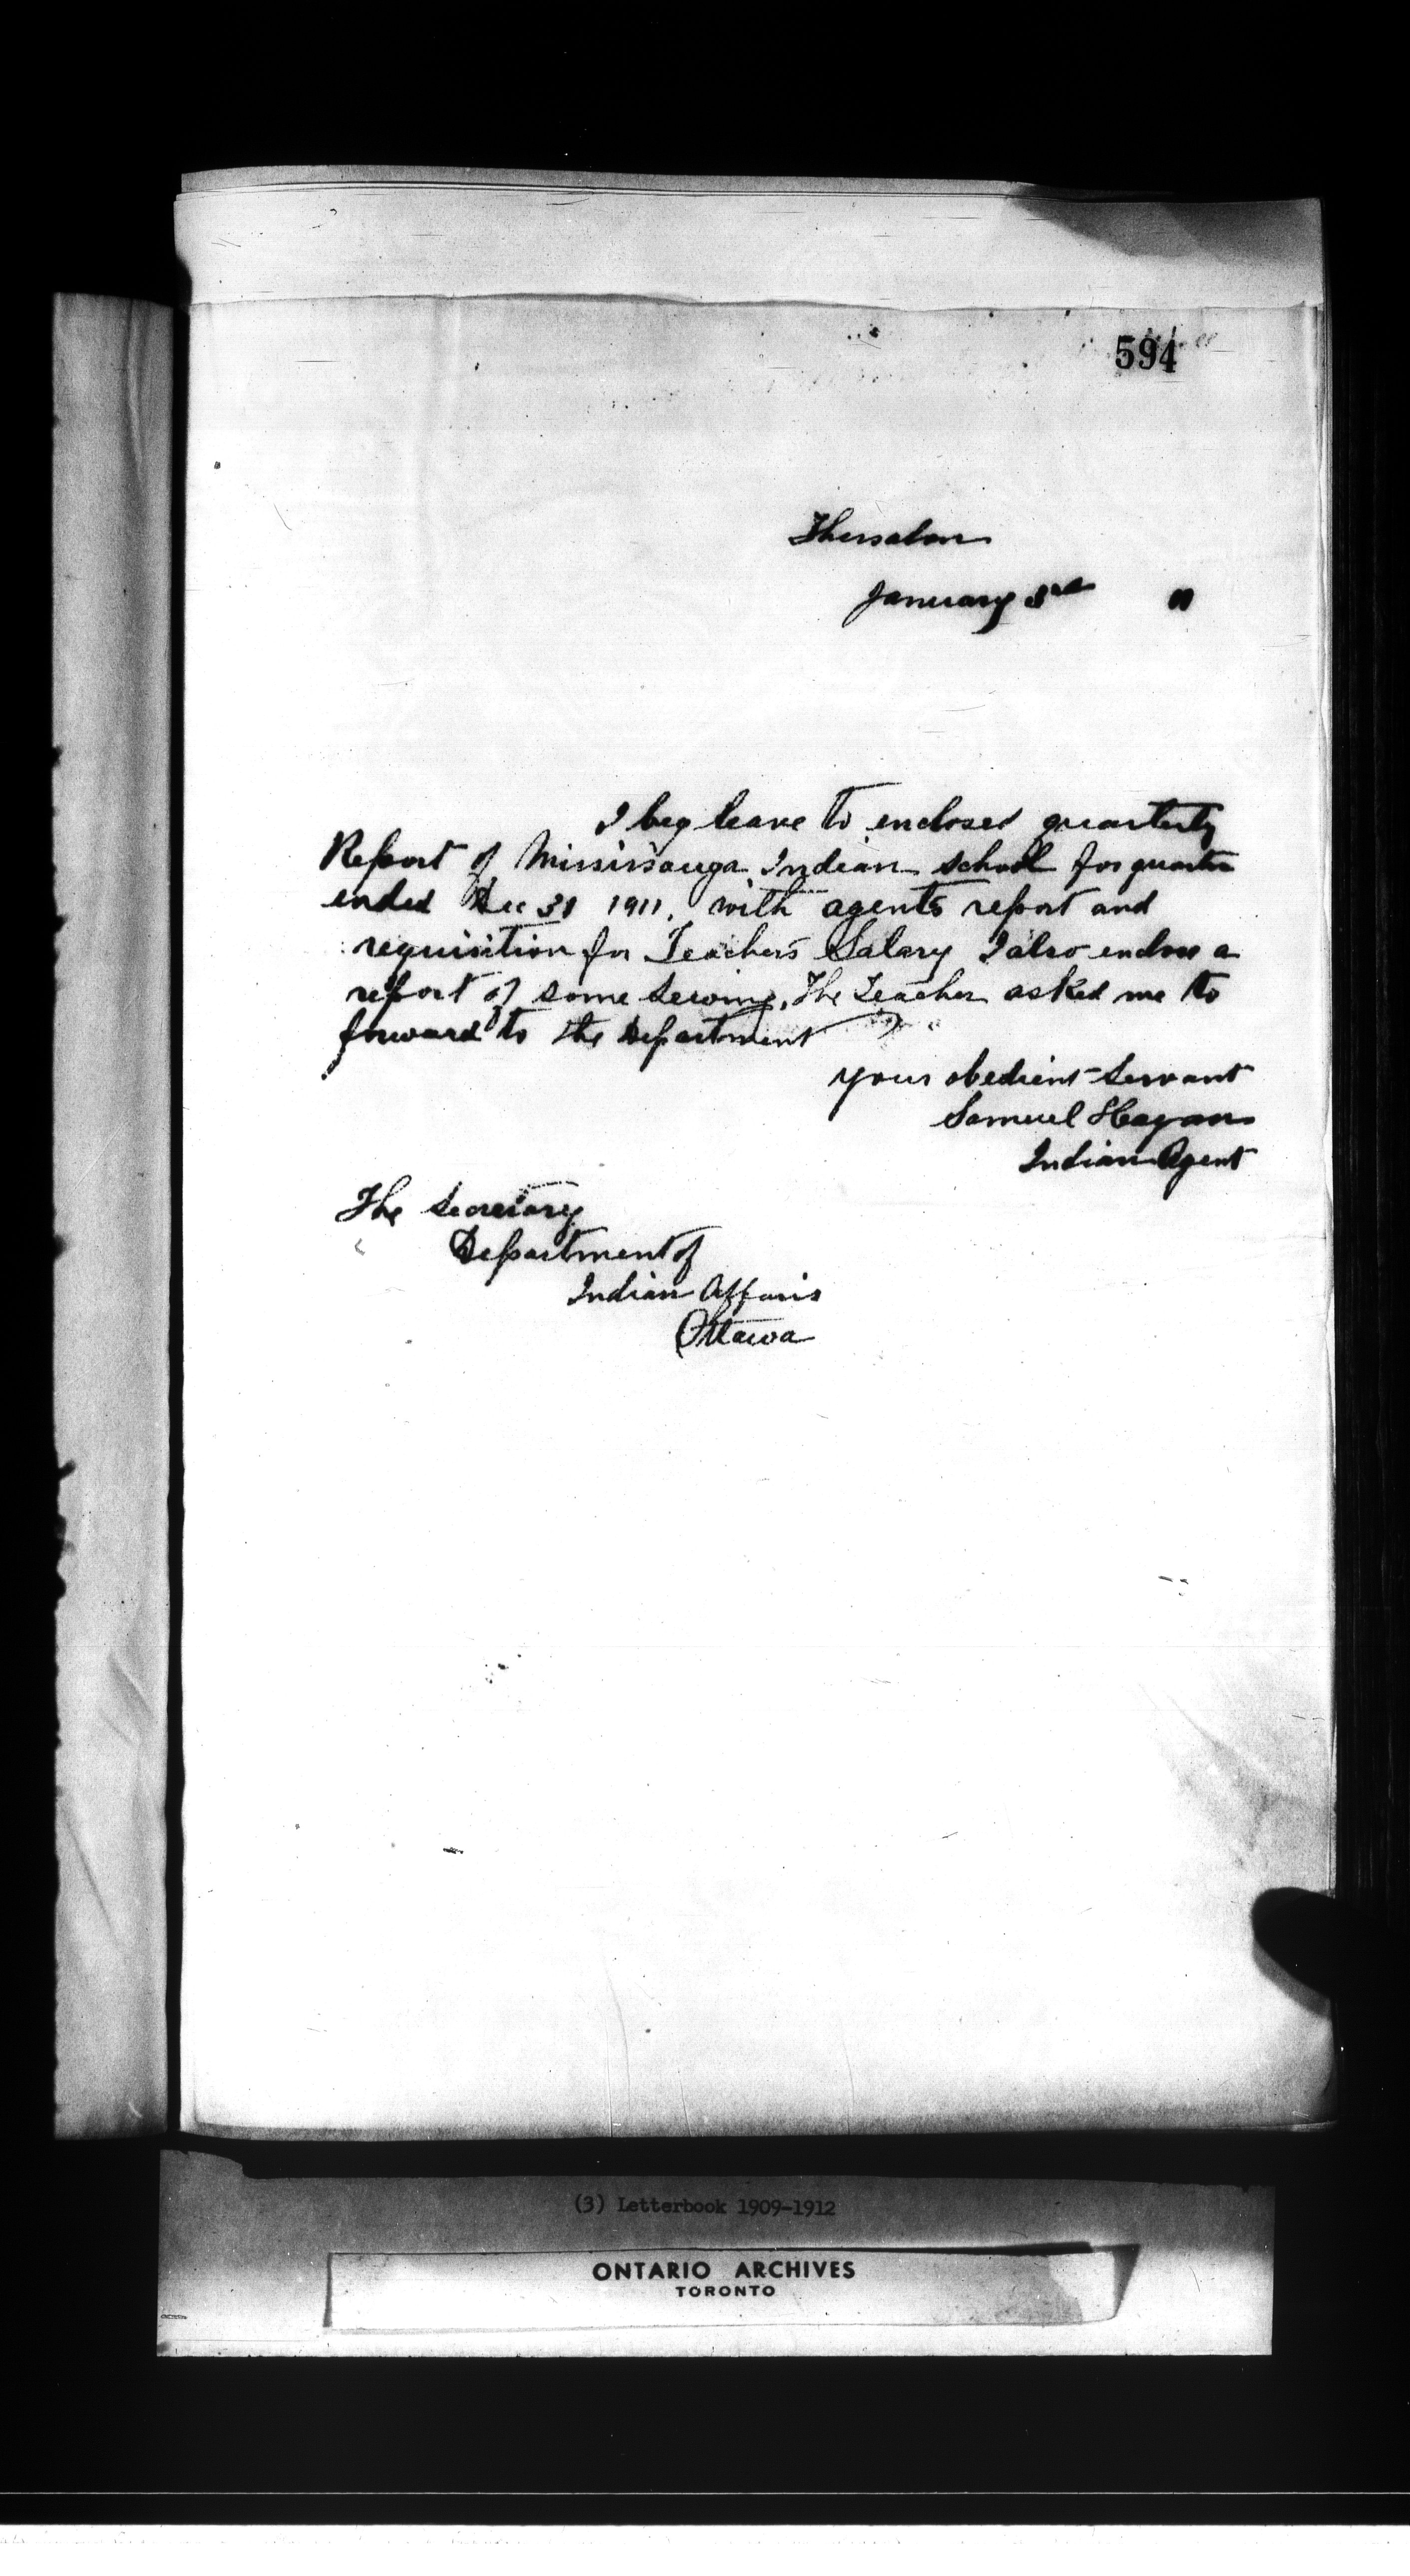 594
Thessalon
January 3rd 11
I beg leave to enclosed quarterly
Report of Mississauga Indian school for quarter
ended Dec 31 1911. with agents report and
requisition for Teachers Salary I also enclose a
report of some Sewing, The Teacher asked me to
forward to the Department
your obedient Servant
Samuel Hagan
Indian Agent
The Secretary
Department of
Indian Affairs
Ottawa
(3) Letterbook 1909-1912
ONTARIO ARCHIVES
TORONTO